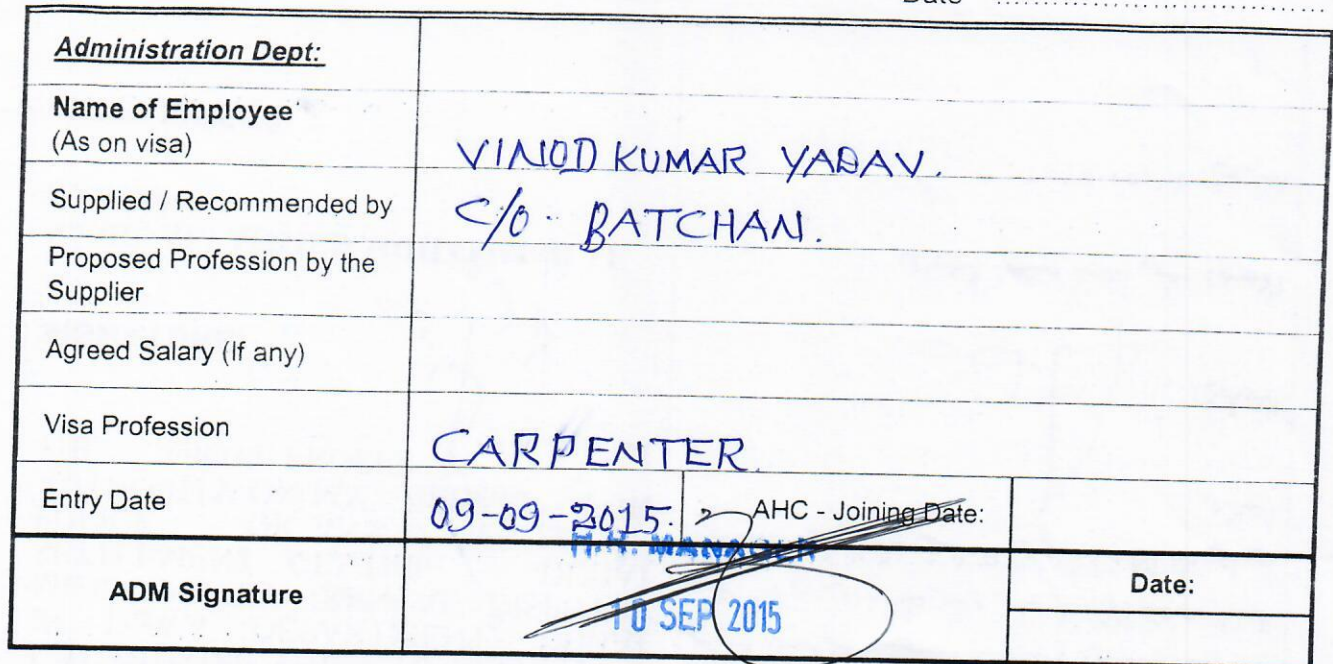 Date ..................................
Administration Dept:
Name of Employee
(As on visa)
VINOD KUMAR YADAV.
Supplied / Recommended by
C/O. BATCHAN.
Proposed Profession by the
Supplier
Agreed Salary (If any)
Visa Profession
CARPENTER.
Entry Date
09-09-2015.
AHC - Joining Date:
H.R. MANAGER
ADM Signature
10 SEP 2015
Date: